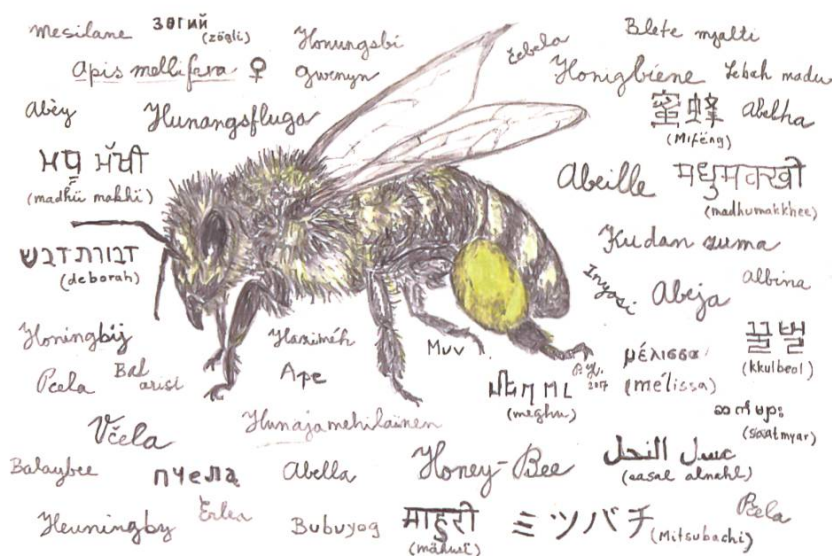 Mesilane
зөгий
(zögii)
Honungsbi
Čebela
Blete mjalti
Apis mellifera ♀
Gwenyn
Honigbiene
Lebah madu
Abèy
Hunangsfluga
蜜蜂
(Mifēng)
Abelha
(madhū makhī)
Abeille
मधुमक्खी
(madhumakkhee)
דבורת דבש
(deborah)
Kudan zuma
Inyosi
Abeja
Albina
Honingbij
Muv
μέλισσα
(mélissa)
꿀벌
(kkulbeol)
Pčela
Bal arisi
Ape
P. H. 2017
(meghu)
(saatmyar)
Včela
Hunajamehiläinen
Balaybee
пчела
Abella
Honey-Bee
عسل النحل
(easal alnahl)
Heuningby
Erlea
Bubuyog
माहुरी
(māhurī)
ミツバチ
(Mitsubachi)
Pčela